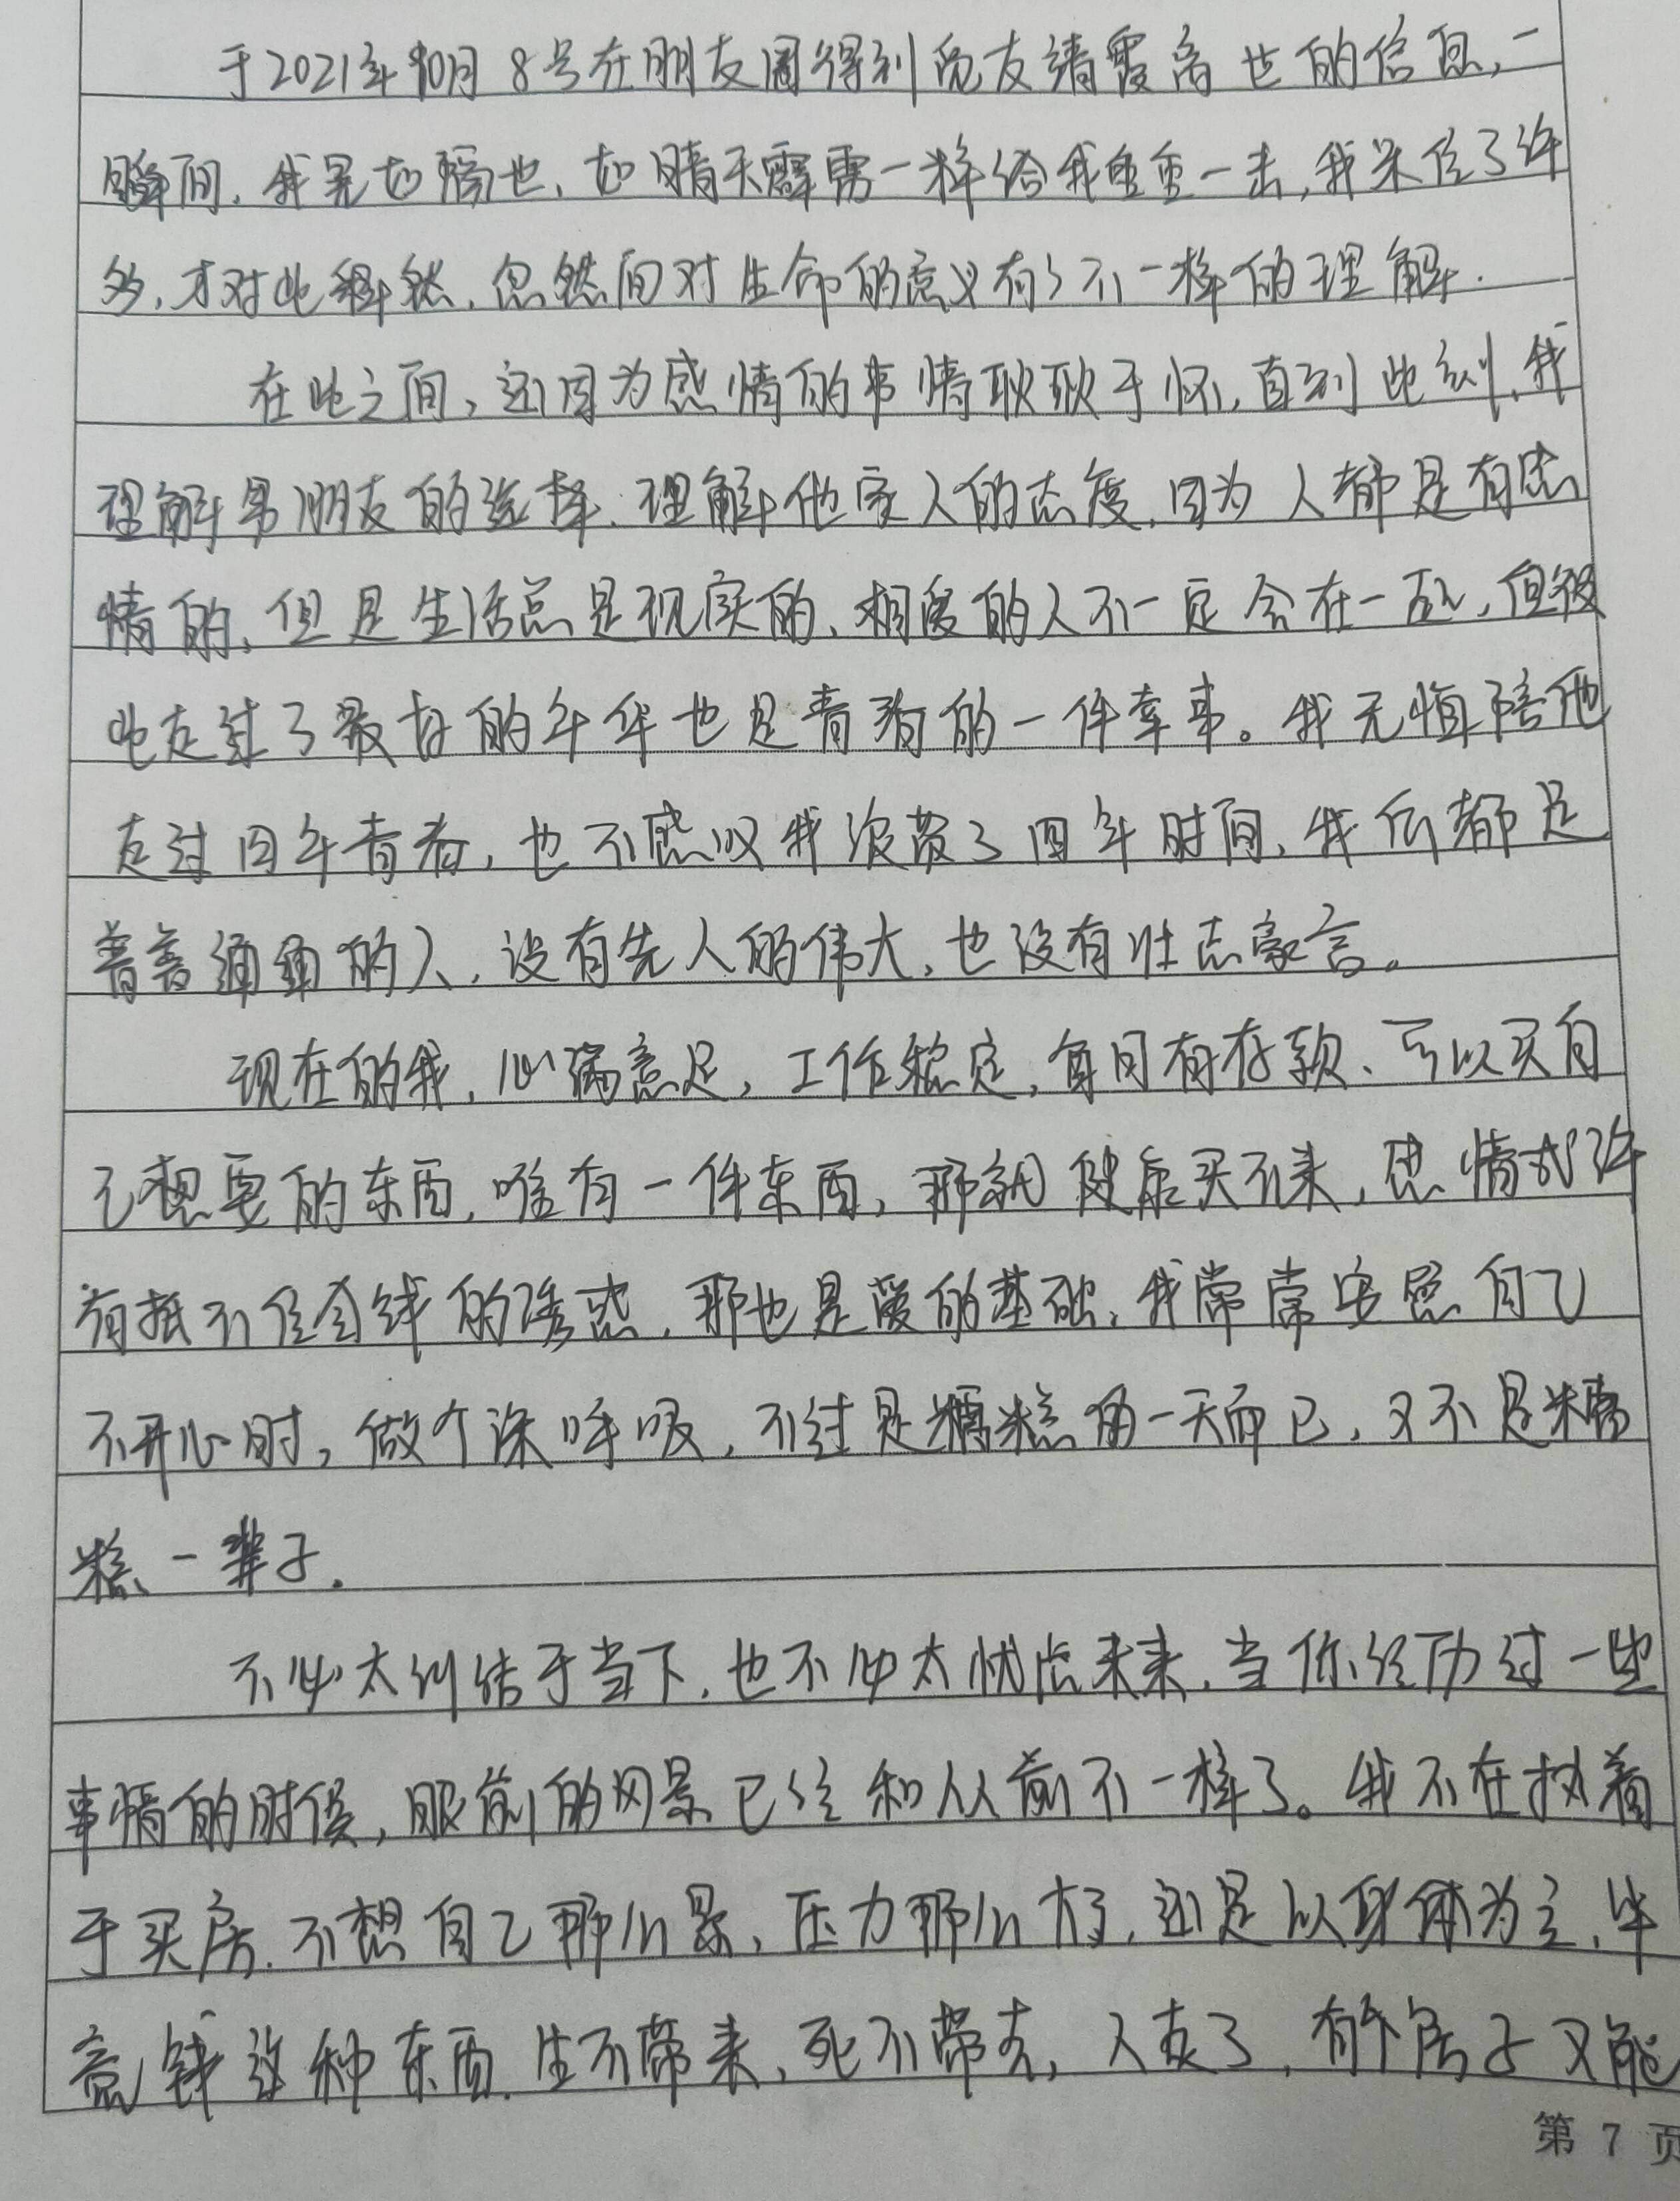 于2021年10月8号在朋友圈得到宛友靖霞离世的信息,一
瞬间,我晃如隔世,如晴天霹雳一样给我重重一击,我呆住了许
多,才对此释然,忽然间对生命的意义有了不一样的理解.
在此之间,还因为感情的事情耿耿于怀,直到此刻,我
理解男朋友的选择.理解他家人的态度,因为人都是有感
情的,但是生活总是现实的,相爱的人不一定会在一起,但彼
此走过了最好的年华也是青春的一件幸事。我无悔陪他
走过四年青春,也不感叹我浪费了四年时间,我们都是
普普通通的人,没有先人的伟大,也没有壮志豪言。
现在的我,心满意足,工作稳定,每月有存款、可以买自
己想要的东西,唯有一件东西,那就健康买不来,感情或许
有抵不住金钱的诱惑,那也是爱的基础,我常常安慰自己
不开心时,做个深呼吸,不过是糟糕的一天而已,又不是糟
糕一辈子.
不必太纠结于当下,也不必太忧虑未来,当你经历过一些
事情的时侯,眼前的风景已经和从前不一样了。我不在执着
于买房.不想自己那么累,压力那么大了,还是以身体为主,毕
竟钱这种东西.生不带来,死不带去,人走了,有个房子又能
第 7 页